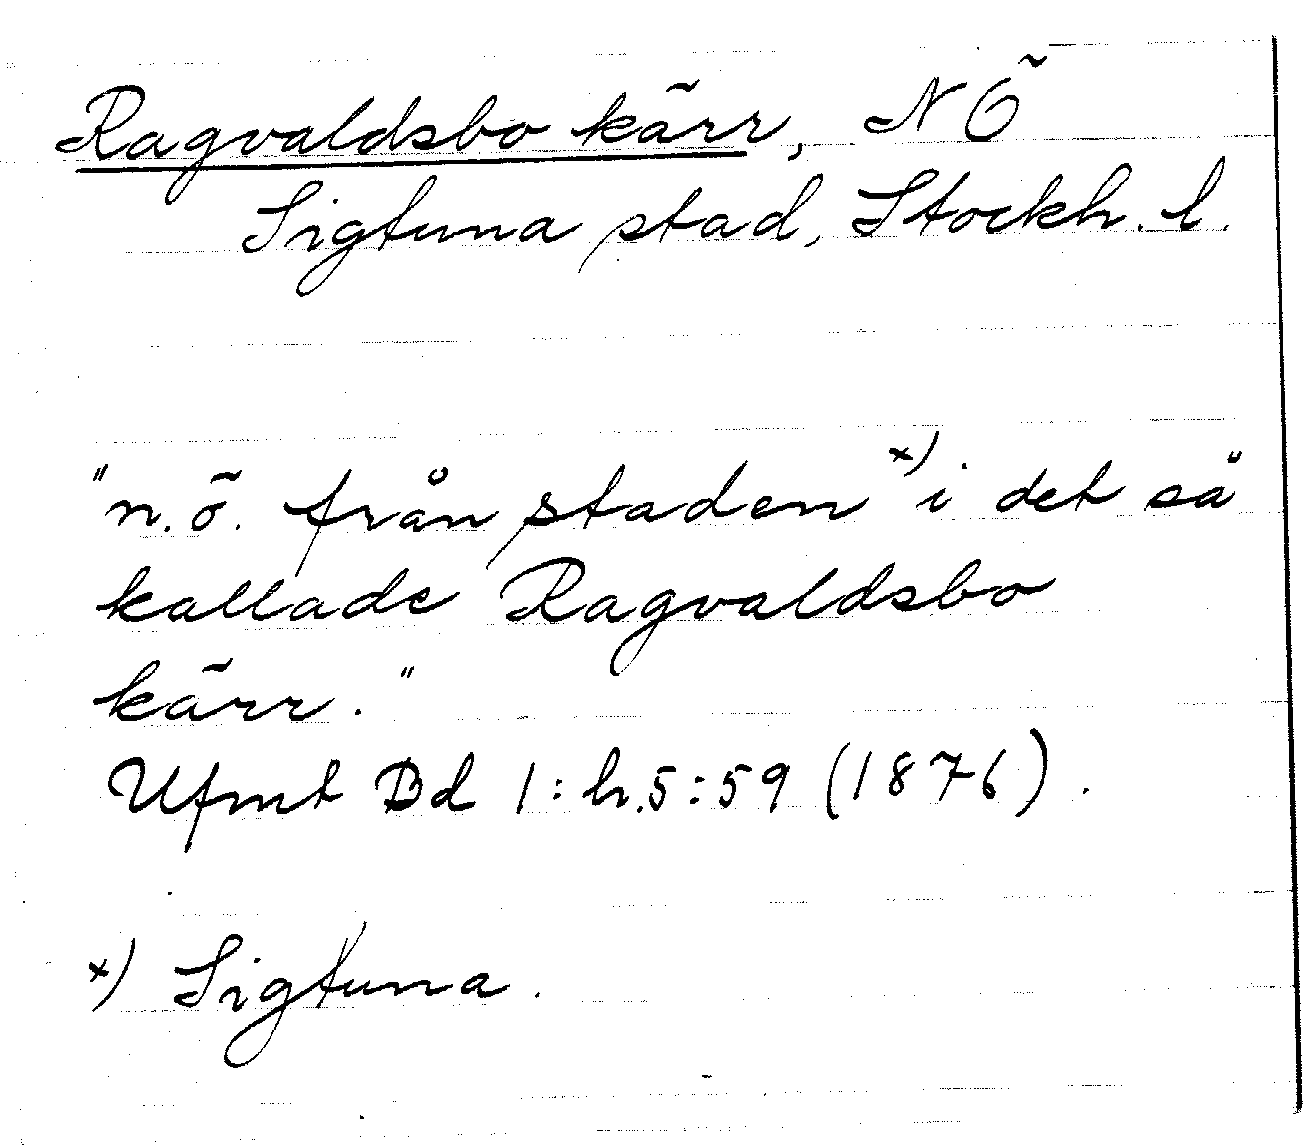 Ragvaldsbo kärr, NÖ
Sigtuna stad, Stockh. l.
"n.ö. från staden x) i det så
kallade Ragvaldsbo
kärr."
Ufmt Bd 1: h.5:59 (1876).
x) Sigtuna.